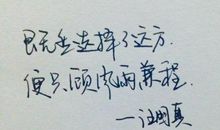 既然选择了远方,
便只顾风雨兼程.
—汪国真